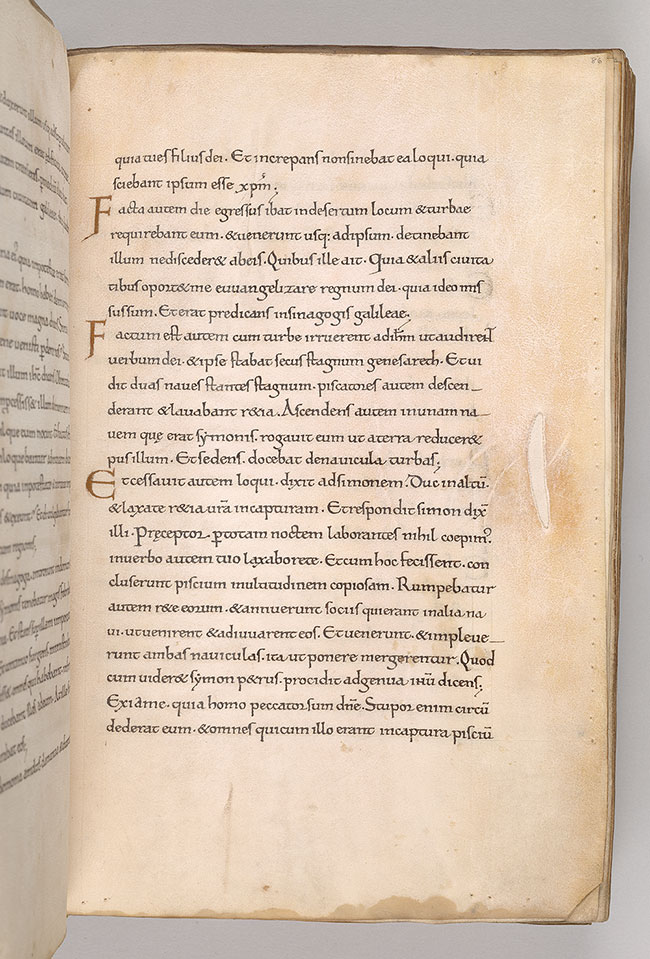 86
quia tu es filius dei. Et increpans non sinebat ea loqui. quia
sciebant ipsum esse xpm̄;
Facta autem die egressus ibat in desertum locum & turbae
requirebant eum. & uenerunt usq: ad ipsum. detinebant
illum ne disceder& ab eis. Quibus ille ait. Quia & aliis ciuita
tibus oport& me euuangelizare regnum dei. quia ideo mis
sus sum. Et erat predicans in sinagogis galileae.
Factum est autem cum turbe irruerent ad ihm̄ ut audirent
uerbum dei. & ipse stabat secus stagnum genesareth. Et ui
dit duas naues stantes stagnum. piscatores autem descen
derant & lauabant r&ia. Ascendens autem in unam na
uem quę erat symonis. rogauit eum ut a terra reducer&
pusillum. Et sedens. docebat de nauicula turbas;
Et cessauit autem loqui. dixit ad simonem. Duc in altū.
& laxate r&ia ur̄a in capturam. Et respondit simon dix̄
illi. Pręceptor. p̱ totam noctem laborantes nihil coepim᾽.
in uerbo autem tuo laxabo rete. Et cum hoc fecissent. con
cluserunt piscium multitudinem copiosam. Rumpebatur
autem r&e eorum. & annuerunt sociis qui erant in alia na
ui. ut uenirent & adiuuarent eos. Et uenerunt. & impleue
runt ambas nauiculas. ita ut ponere mergerentur. Quod
cum uider& symon p&rus. procidit ad genua ihū dicens;
Exi a me. quia homo peccator sum dn̄e. Stupor enim circū
dederat eum. & omnes qui cum illo erant in captura pisciū